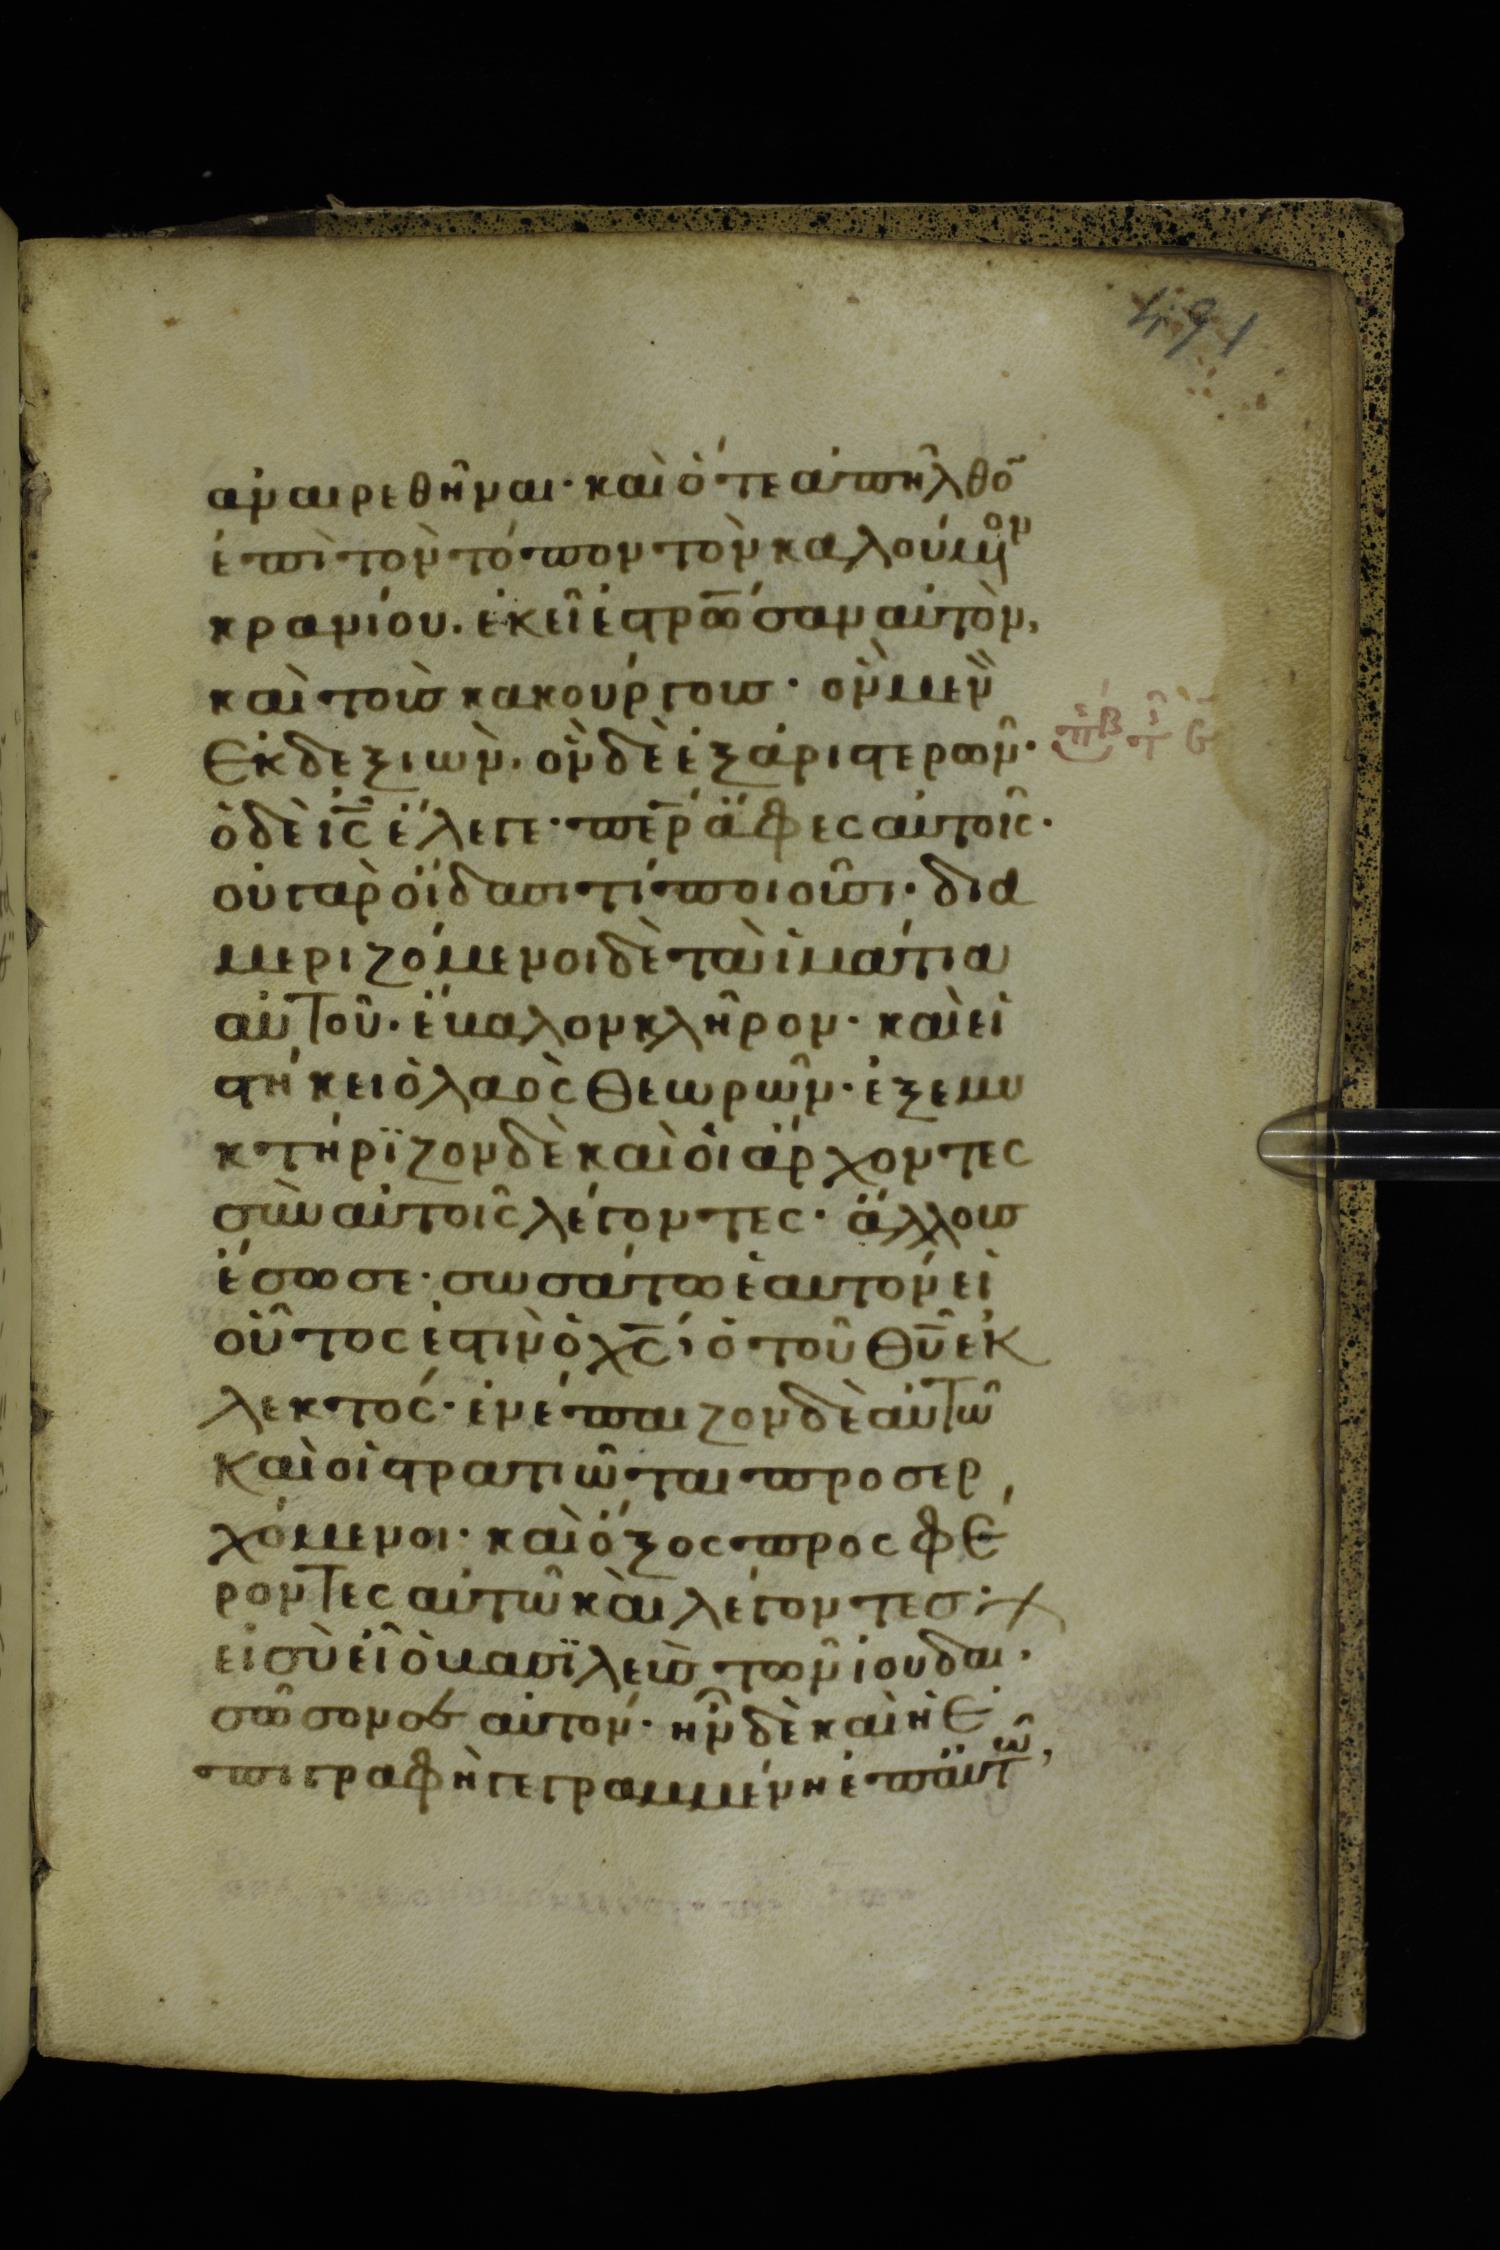 491
ἀναιρεθῆναι· καὶ ὅτε ἀπῆλθο̅
ἐπὶ τὸν τόπον τὸν καλούμ̅ον
κρανίου. ἐκεῖ ἐστρω̅σαν αὐτὸν,
καὶ τοὺς κακούργους· ὃν μὲν
ἐκ δεξιὼν. ὃν δὲ ἐξ ἀριστερῶν·
ὁ δὲ ἰ̅ς̅ ἔλεγε· πε̅ρ ἄφες αὐτοῖς·
οὐ γαρ οἴδασι τί ποιοῦσι· δια
μεριζόμενοι δὲ τὰ ἱμάτια
αὐτοῦ. ἔβαλον κλῆρον· καὶ εἱ
στήκει ὁ λαὸς θεωρῶν· ἐξεμυ
κτήρϊζον δὲ καὶ οἱ ἄρχοντες
σὺν αὐτοῖς λέγοντες· ἄλλους
ἔσωσε· σωσάτω ἑαυτον εἰ
οὗτος ἐστιν ὁ χ̅ς̅, ὁ τοῦ θ̅υ̅ ἐκ
λεκτός· ἐνέπαιζον δὲ αὐτῶ
καὶ οἱ στρατιῶται προσερ
χόμενοι· καὶ ὄξος προςφέ
ροντες αὐτῶ καὶ λέγοντες·
εἰ σὺ εἶ ὁ βασϊλεὺς τῶν ἰουδαι.
σῶσον σεαυτον· ἦν δὲ καὶ ἡ ἐ
πιγραφὴ γεγραμμένη ἐπαὐτῶ,